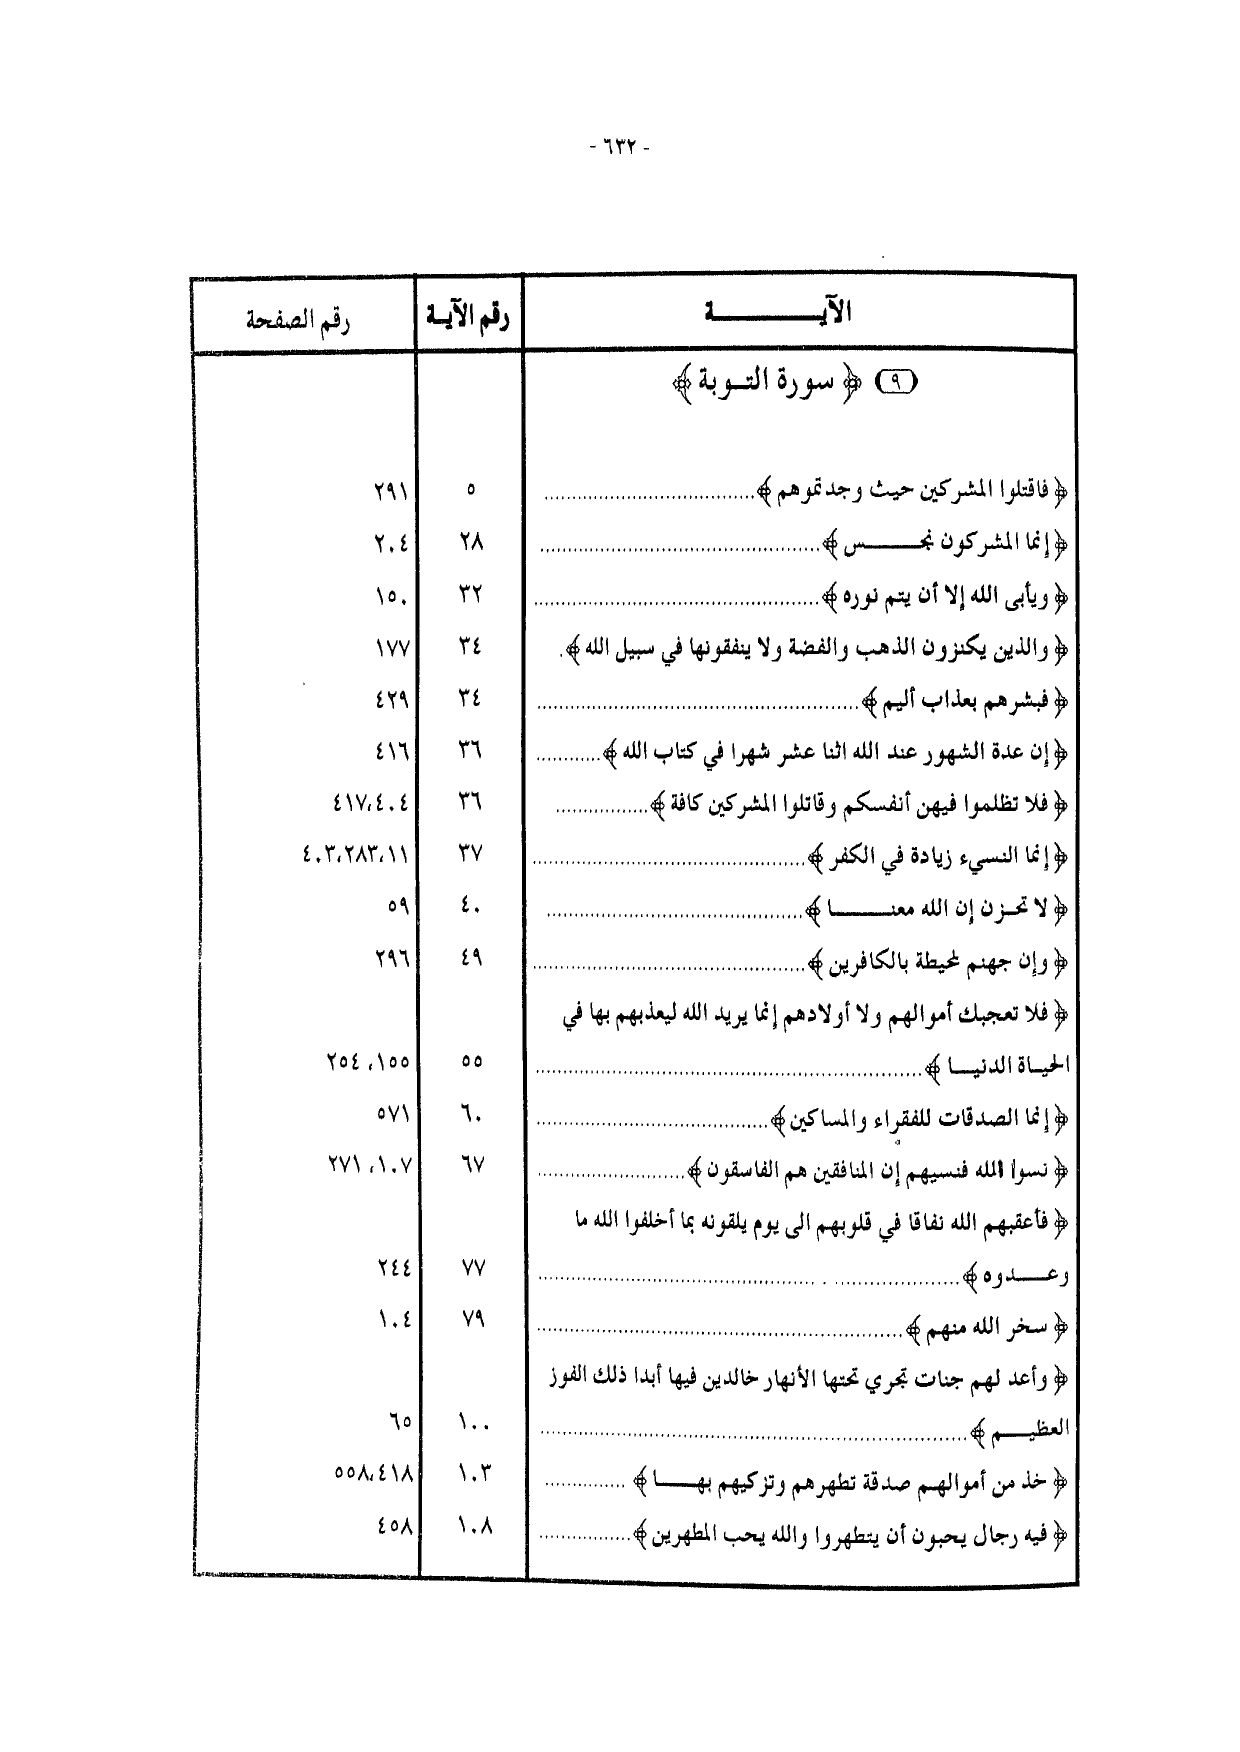 - ٦٣٢ -
الآيـــــــــة رقم الآيـة رقم الصفحة
(٩) ﴿ سورة التـوبة ﴾
﴿ فاقتلوا المشركين حيث وجدتموهم ﴾................................... ٥ ٢٩١
﴿ إنما المشركون نجـــــس ﴾............................................... ٢٨ ٢٠٤
﴿ ويأبى الله إلا أن يتم نوره ﴾............................................... ٣٢ ١٥٠
﴿ والذين يكنزون الذهب والفضة ولا ينفقونها في سبيل الله ﴾. ٣٤ ١٧٧
﴿ فبشرهم بعذاب أليم ﴾..................................................... ٣٤ ٤٢٩
﴿ إن عدة الشهور عند الله اثنا عشر شهرا في كتاب الله ﴾............ ٣٦ ٤١٦
﴿ فلا تظلموا فيهن أنفسكم وقاتلوا المشركين كافة ﴾................. ٣٦ ٤١٧،٤٠٤
﴿ إنما النسيء زيادة في الكفر ﴾............................................. ٣٧ ٤٠٣،٢٨٣،١١
﴿ لا تحـزن إن الله معنـــــا ﴾........................................... ٤٠ ٥٩
﴿ وإن جهنم لمحيطة بالكافرين ﴾............................................. ٤٩ ٢٩٦
﴿ فلا تعجبك أموالهم ولا أولادهم إنما يريد الله ليعذبهم بها في
الحيـاة الدنيـا ﴾................................................................ ٥٥ ١٥٥، ٢٥٤
﴿ إنما الصدقات للفقراء والمساكين ﴾....................................... ٦٠ ٥٧١
﴿ نسوا الله فنسيهم إن المنافقين هم الفاسقون ﴾......................... ٦٧ ١٠٧، ٢٧١
﴿ فأعقبهم الله نفاقا في قلوبهم الى يوم يلقونه بما أخلفوا الله ما
وعــــدوه ﴾...................................................................... ٧٧ ٢٤٤
﴿ سخر الله منهم ﴾............................................................. ٧٩ ١٠٤
﴿ وأعد لهم جنات تجري تحتها الأنهار خالدين فيها أبدا ذلك الفوز
العظيـــم ﴾....................................................................... ١٠٠ ٦٥
﴿ خذ من أموالهـم صدقة تطهرهم وتزكيهم بهـــا ﴾ .............. ١٠٣ ٥٥٨،٤١٨
﴿ فيه رجال يحبون أن يتطهروا والله يحب المطهرين ﴾................ ١٠٨ ٤٥٨